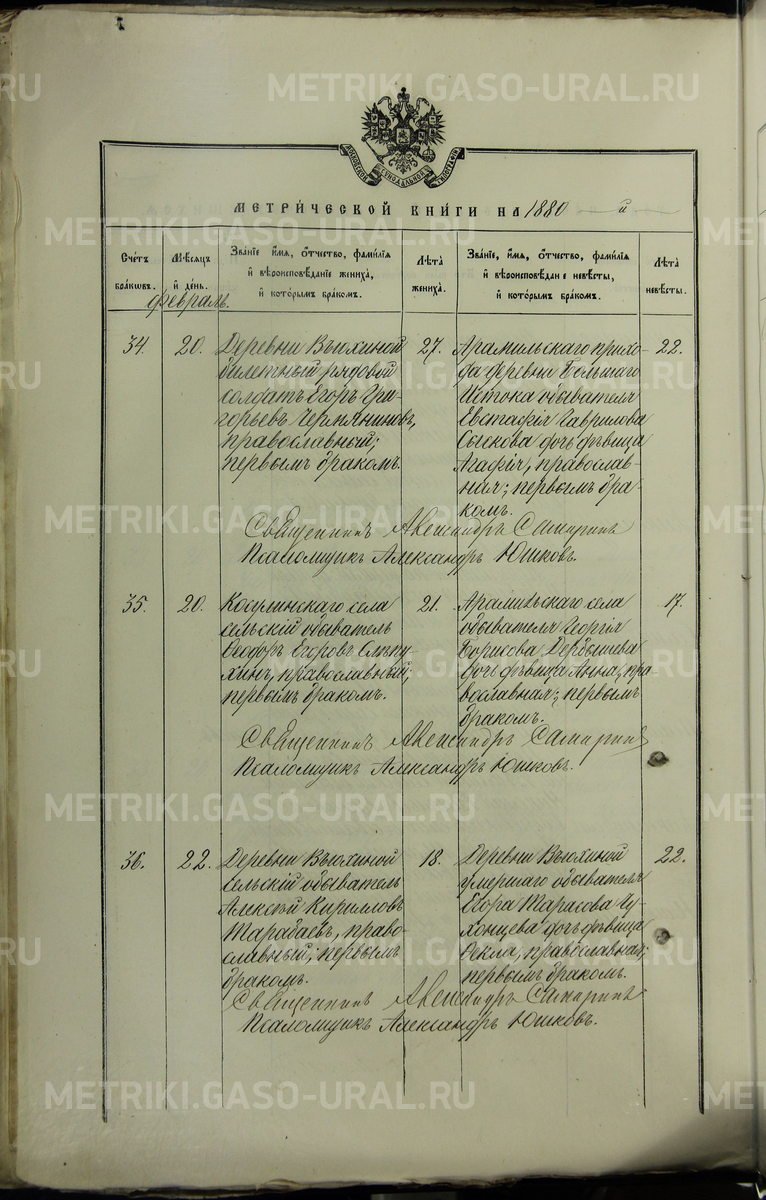 МОСКОВСКОЙ СѴНОДАЛЬНОЙ ТИПОГРАФІИ
МЕТРИ́ЧЕСКОЙ КНИ́ГИ НА 1880 й
Сче́тъ бра́кѡвъ.
Мѣ́сяцъ и҆ де́нь.
Зва́нїе и҆́мя, ѻ҆́тчество, фами́лїя и҆ вѣроисповѣ́данїе жениха̀, и҆ кото́рымъ бра́комъ.
Лѣ́та жениха̀.
Зва́нїе, и҆́мя, ѻ҆́тчество, фами́лїя и҆ вѣроисповѣ́данїе невѣ́сты, и҆ кото́рымъ бра́комъ.
Лѣ́та невѣ́сты.
Февраль.
34.
20.
Деревни Вьюхиной
билетный рядовой
солдатъ Егоръ Гри-
горьевъ Чермяниновъ,
православный;
первымъ бракомъ.
27.
Арамильскаго прихо-
да деревни Большаго
Истока обывателя
Евстафія Гаврилова
Сыскова дочь дѣвица
Агафія, православ-
ная; первымъ бра-
комъ.
22.
Священникъ Александръ Самаринъ
Псаломщикъ Александръ Юшковъ.
35.
20.
Косулинскаго села
сельскій обыватель
Ѳеодоръ Егоровъ Слѣпу-
хинъ, православный;
первымъ бракомъ.
21.
Арамильскаго села
обывателя Георгія
Борисова Дербышева
дочь дѣвица Анна, пра-
вославная; первымъ
бракомъ.
17.
Священникъ Александръ Самаринъ
Псаломщикъ Александръ Юшковъ.
36.
22.
Деревни Вьюхиной
сельскій обыватель
Алексѣй Кирилловъ
Тарабаевъ, право-
славный; первымъ
бракомъ.
18.
Деревни Вьюхиной
умершаго обывателя
Егора Тарасова Чу-
хонцева дочь дѣвица
Ѳекла, православная;
первымъ бракомъ.
22.
Священникъ Александръ Самаринъ
Псаломщикъ Александръ Юшковъ.
METRIKI.GASO-URAL.RU
METRIKI.GASO-URAL.RU
METRIKI.GASO-URAL.RU
METRIKI.GASO-URAL.RU
METRIKI.GASO-URAL.RU
METRIKI.GASO-URAL.RU
METRIKI.GASO-URAL.RU
METRIKI.GASO-URAL.RU